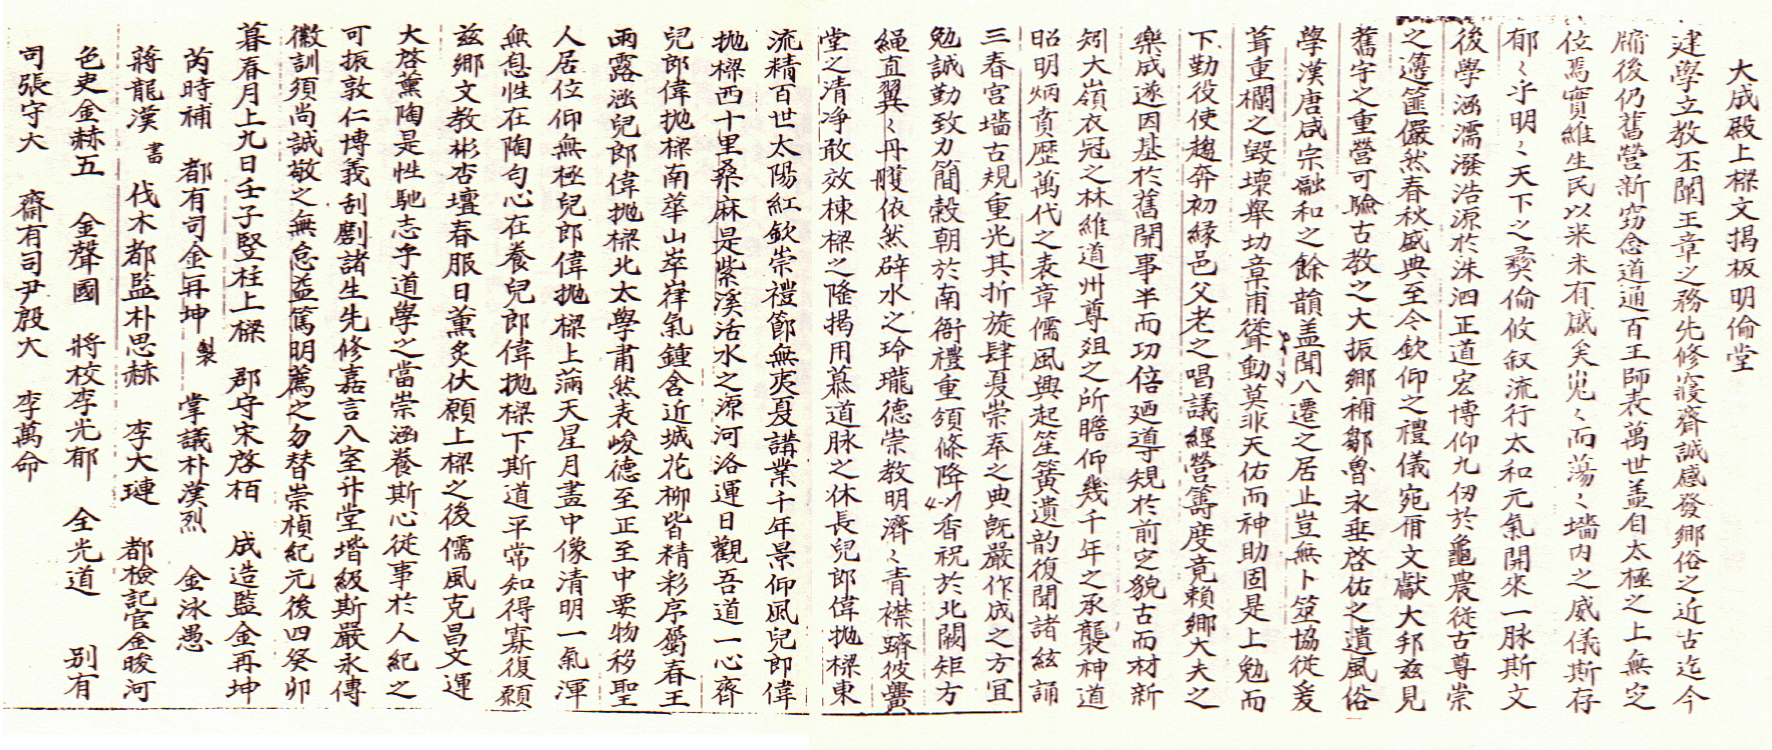 大成殿上樑文揭板明倫堂
建學立教丕闡王章之務先修寢齊誠感發鄉俗之近古迄今
牖後仍舊營新窃念道通百王師表萬世盖自太極之上無空
位焉實維生民以来未有盛矣嵬〻而蕩〻墻内之威儀斯存
郁〻乎明〻天下之彛倫攸叙流行太和元氣開來一脉斯文
後學涵濡潑浩源於洙泗正道宏博仰九仞於龜農從古尊崇
之籩簠儼然春秋盛典至今欽仰之禮儀宛甭文獻大邦玆見
舊宇之重營可驗古教之大振鄉稱鄒魯永垂啓佑之遺風俗
學漢唐咸宗融和之餘韻盖聞八遷之居止豈無卜筮協從爰
葺重欄之毀壞擧切章甫聳動莫非天佑而神助固是上勉而
下勤役使趨奔初緣邑父老之唱議經營籌度竟賴鄉大夫之
樂成遂因基於舊開事半而功倍廼導規於前定貌古而材新
矧大嶺衣冠之林維道州尊爼之所瞻仰幾千年之承襲神道
昭明炳賁歷萬代之表章儒風興起笙簧遺韵復聞諸絃誦
三春宫墻古規重光其折旋肆夏崇奉之典旣嚴作成之方宜
勉誠勤致力簡穀朝於南衙禮重頒條降香祝於北闕矩方
繩直翼〻丹雘依然辟水之玲瓏德崇教明濟〻青襟躋彼黌
堂之清净敢效棟樑之隆揭用慕道脉之休長兒郎偉抛樑東
流精百世太陽紅欽崇禮節無夷夏講業千年景仰風兒郎偉
抛樑西十里桑麻是紫溪活水之源河洛運日觀吾道一心齊
兒郎偉抛樑南華山崒嵂氣鍾含近城花柳皆精彩序屬春王
雨露涵兒郎偉抛樑北太學肅然表峻德至正至中要物移聖
人居位仰無極兒郎偉抛樑上滿天星月盡中像清明一氣渾
無息性在陶匀心在養兒郎偉抛樑下斯道平常知得寡復願
玆鄉文教彬杏壇春服日薰炙伏願上樑之後儒風克昌文運
大啓薰陶是性馳志乎道學之當崇涵養斯心從事於人紀之
可振敦仁博義刮劘諸生先修嘉言入室升堂堦級斯嚴永傳
徽訓須尚誠敬之無怠益篤明薦之勿替崇楨紀元後四癸卯
暮春月上九日壬子竪柱上樑　郡守宋啓栢　成造監金再坤
芮時補　都有司金再坤製　掌議朴漢烈　金泳愚
蔣龍漢書　伐木都監朴思赫　李大璉　都檢記官金晙河
色吏金赫五　金聲國　將校李光郁　全光道　别有
司張守大　齋有司尹殷大　李萬命